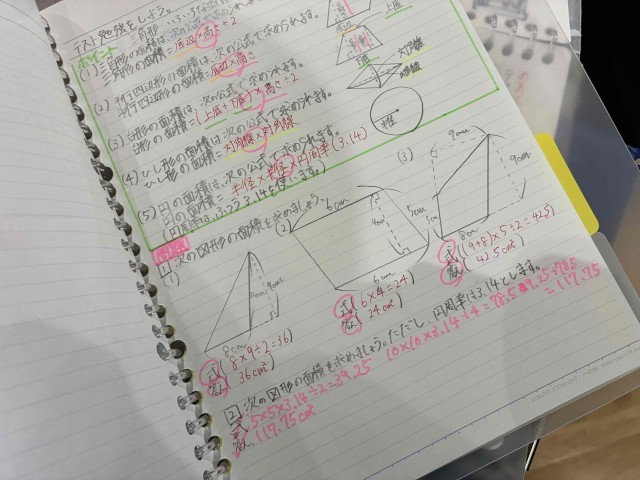 テスト勉強をしよう。
ポイント
(1) 三角形の面積は、次の公式で求められます。
三角形の面積=底辺×高さ÷2
(2) 平行四辺形の面積は、次の公式で求められます。
平行四辺形の面積=底辺×高さ
(3) 台形の面積は、次の公式で求められます。
台形の面積=(上底+下底)×高さ÷2
(4) ひし形の面積は、次の公式で求められます。
ひし形の面積=対角線×対角線
(5) 円の面積は、次の公式で求められます。
円の面積=半径×半径×円周率(3.14)
(円周率は、ふつう3.14を使います。)
上底
対角線
対角線
半径
1 次の図形の面積を求めましょう。
(1)
8cm
9cm
式(8×9÷2=36)
答(36cm²)
(2)
6cm
4cm
5cm
6cm
式(6×4=24)
答(24cm²)
(3)
9cm
9cm
5cm
8cm
式((9+8)×5÷2=42.5)
答(42.5cm²)
2 次の図形の面積を求めましょう。ただし、円周率は3.14とします。
式 5×5×3.14÷2=39.25 10×10×3.14÷4=78.5 39.25+78.5
=117.75
答 117.75cm²